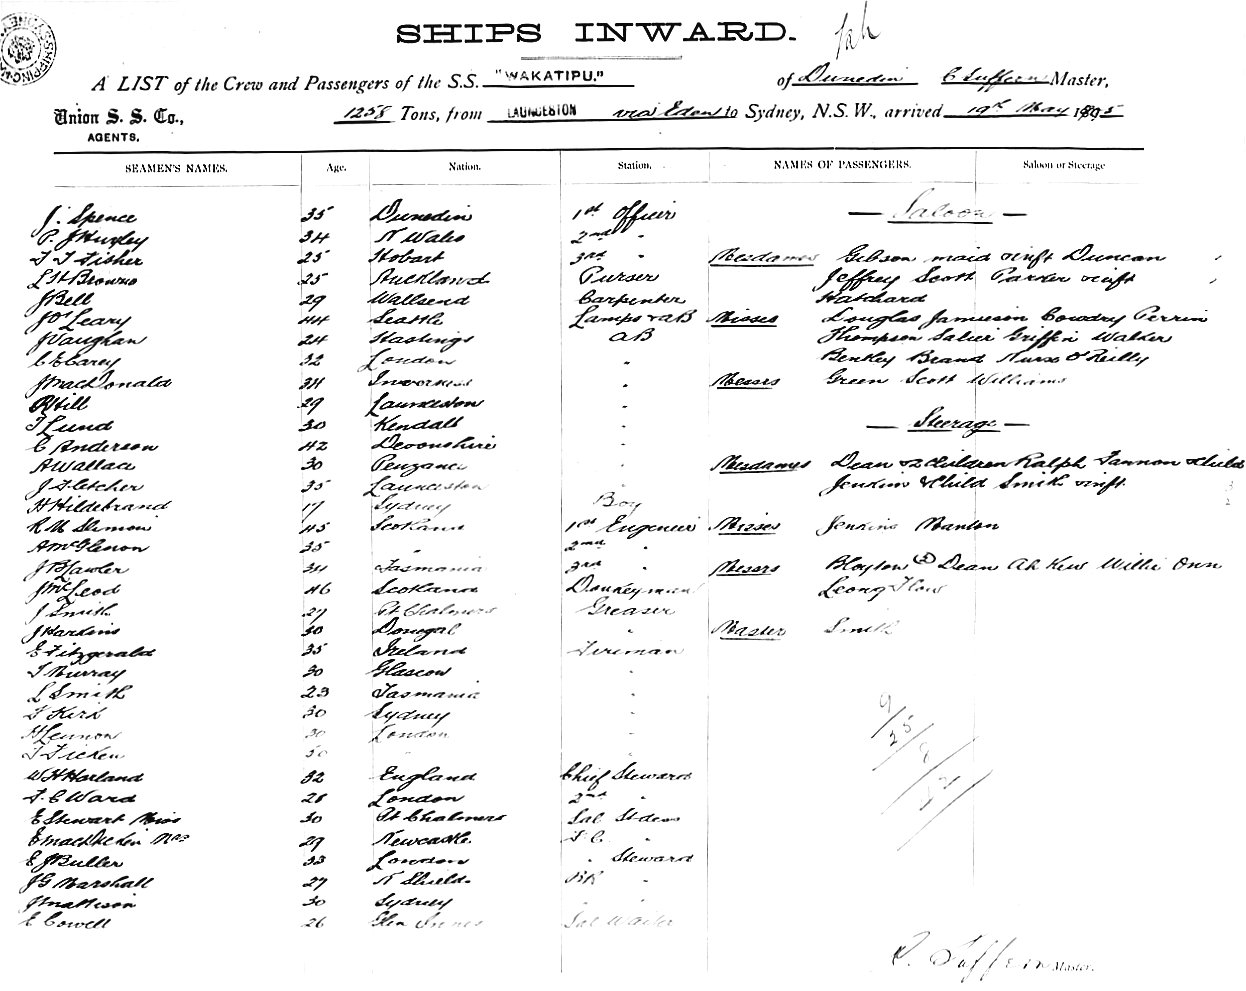 SHIPS INWARD.
A LIST of the Crew and Passengers of the S.S. "WAKATIPU." of Dunedin C Suffern Master,
Union S. S. Co., AGENTS. 1258 Tons, from LAUNCESTON via Eden to Sydney, N.S.W., arrived 19th May 1895
SEAMEN'S NAMES. Age. Nation. Station. NAMES OF PASSENGERS. Saloon or Steerage
J. Spence 35 Dunedin 1st Officer — Saloon —
P. J Huxley 34 N Wales 2nd "
T T Fisher 25 Hobart 3rd " Mesdames Gibson maid & inft Duncan
L H Browne 25 Auckland Purser Jeffrey Scott Parker & inft
J Bell 29 Wallsend Carpenter Hatchard
J O'Leary 44 Seattle Lamps & AB Misses Douglas Jamieson Cowdry Perrin
J Vaughan 24 Hastings AB Thompson Salier Griffin Walker
C E Carey 32 London " Benkley Brand Nurse O'Reilly
J MacDonald 34 Inverness " Messrs Green Scott Williams
Hill 29 Launceston "
T Lund 30 Kendall " — Steerage —
C Anderson 42 Devonshire "
A Wallace 30 Penzance " Mesdames Dean & 2 children Ralph Fannon & child
J Fletcher 35 Launceston " Jenkin & child Smith & inft
H Hildebrand 17 Sydney Boy
R M Slimon 45 Scotland 1st Engineer Misses Jenkins Manton
A McGlenon 35 " 2nd "
J B Lawler 34 Tasmania 3rd " Messrs Bloyton (3) Dean Ah Kew Willie Onn
J McLeod 46 Scotland Donkeyman Leong Flow
J Smith 27 Pt Chalmers Greaser
J Harkins 30 Donegal " Master Smith
E Fitzgerald 35 Ireland Fireman
T Murray 30 Glascow "
L Smith 23 Tasmania "
T Kirk 30 Sydney "
H Lennon 30 London "
T Ficken 50 " "
W H Harland 32 England Chief Steward
F. C Ward 28 London 2nd "
E Stewart Miss 30 Pt Chalmers Sal St-dess
E MacDicken Mrs 29 Newcastle F C "
E J Buller 33 London " Steward
J G Marshall 27 N Shields BR "
J Mattison 30 Sydney " "
E Cowell 26 Glen Innes Sal Waiter
C. Suffern Master.